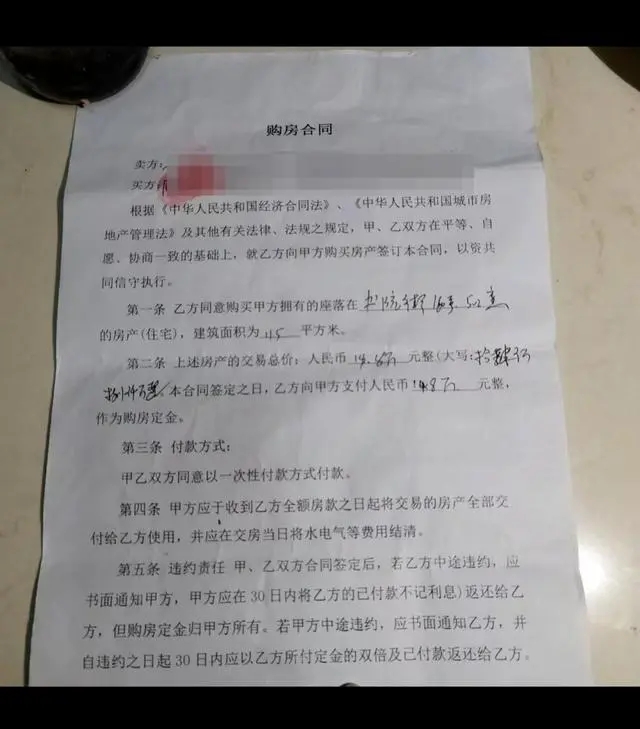 购房合同
卖方:
买方
根据《中华人民共和国经济合同法》、《中华人民共和国城市房
地产管理法》及其他有关法律、法规之规定，甲、乙双方在平等、自
愿、协商一致的基础上，就乙方向甲方购买房产签订本合同，以资共
同信守执行。
第一条 乙方同意购买甲方拥有的座落在
的房产(住宅)，建筑面积为 45 平方米。
第二条 上述房产的交易总价：人民币 14.8万 元整(大写:
本合同签定之日，乙方向甲方支付人民币 14.8万 元整，
作为购房定金。
第三条 付款方式:
甲乙双方同意以一次性付款方式付款。
第四条 甲方应于收到乙方全额房款之日起将交易的房产全部交
付给乙方使用，并应在交房当日将水电气等费用结清。
第五条 违约责任 甲、乙双方合同签定后，若乙方中途违约，应
书面通知甲方，甲方应在 30 日内将乙方的已付款不记利息)返还给乙
方，但购房定金归甲方所有。若甲方中途违约，应书面通知乙方，并
自违约之日起 30 日内应以乙方所付定金的双倍及已付款返还给乙方。